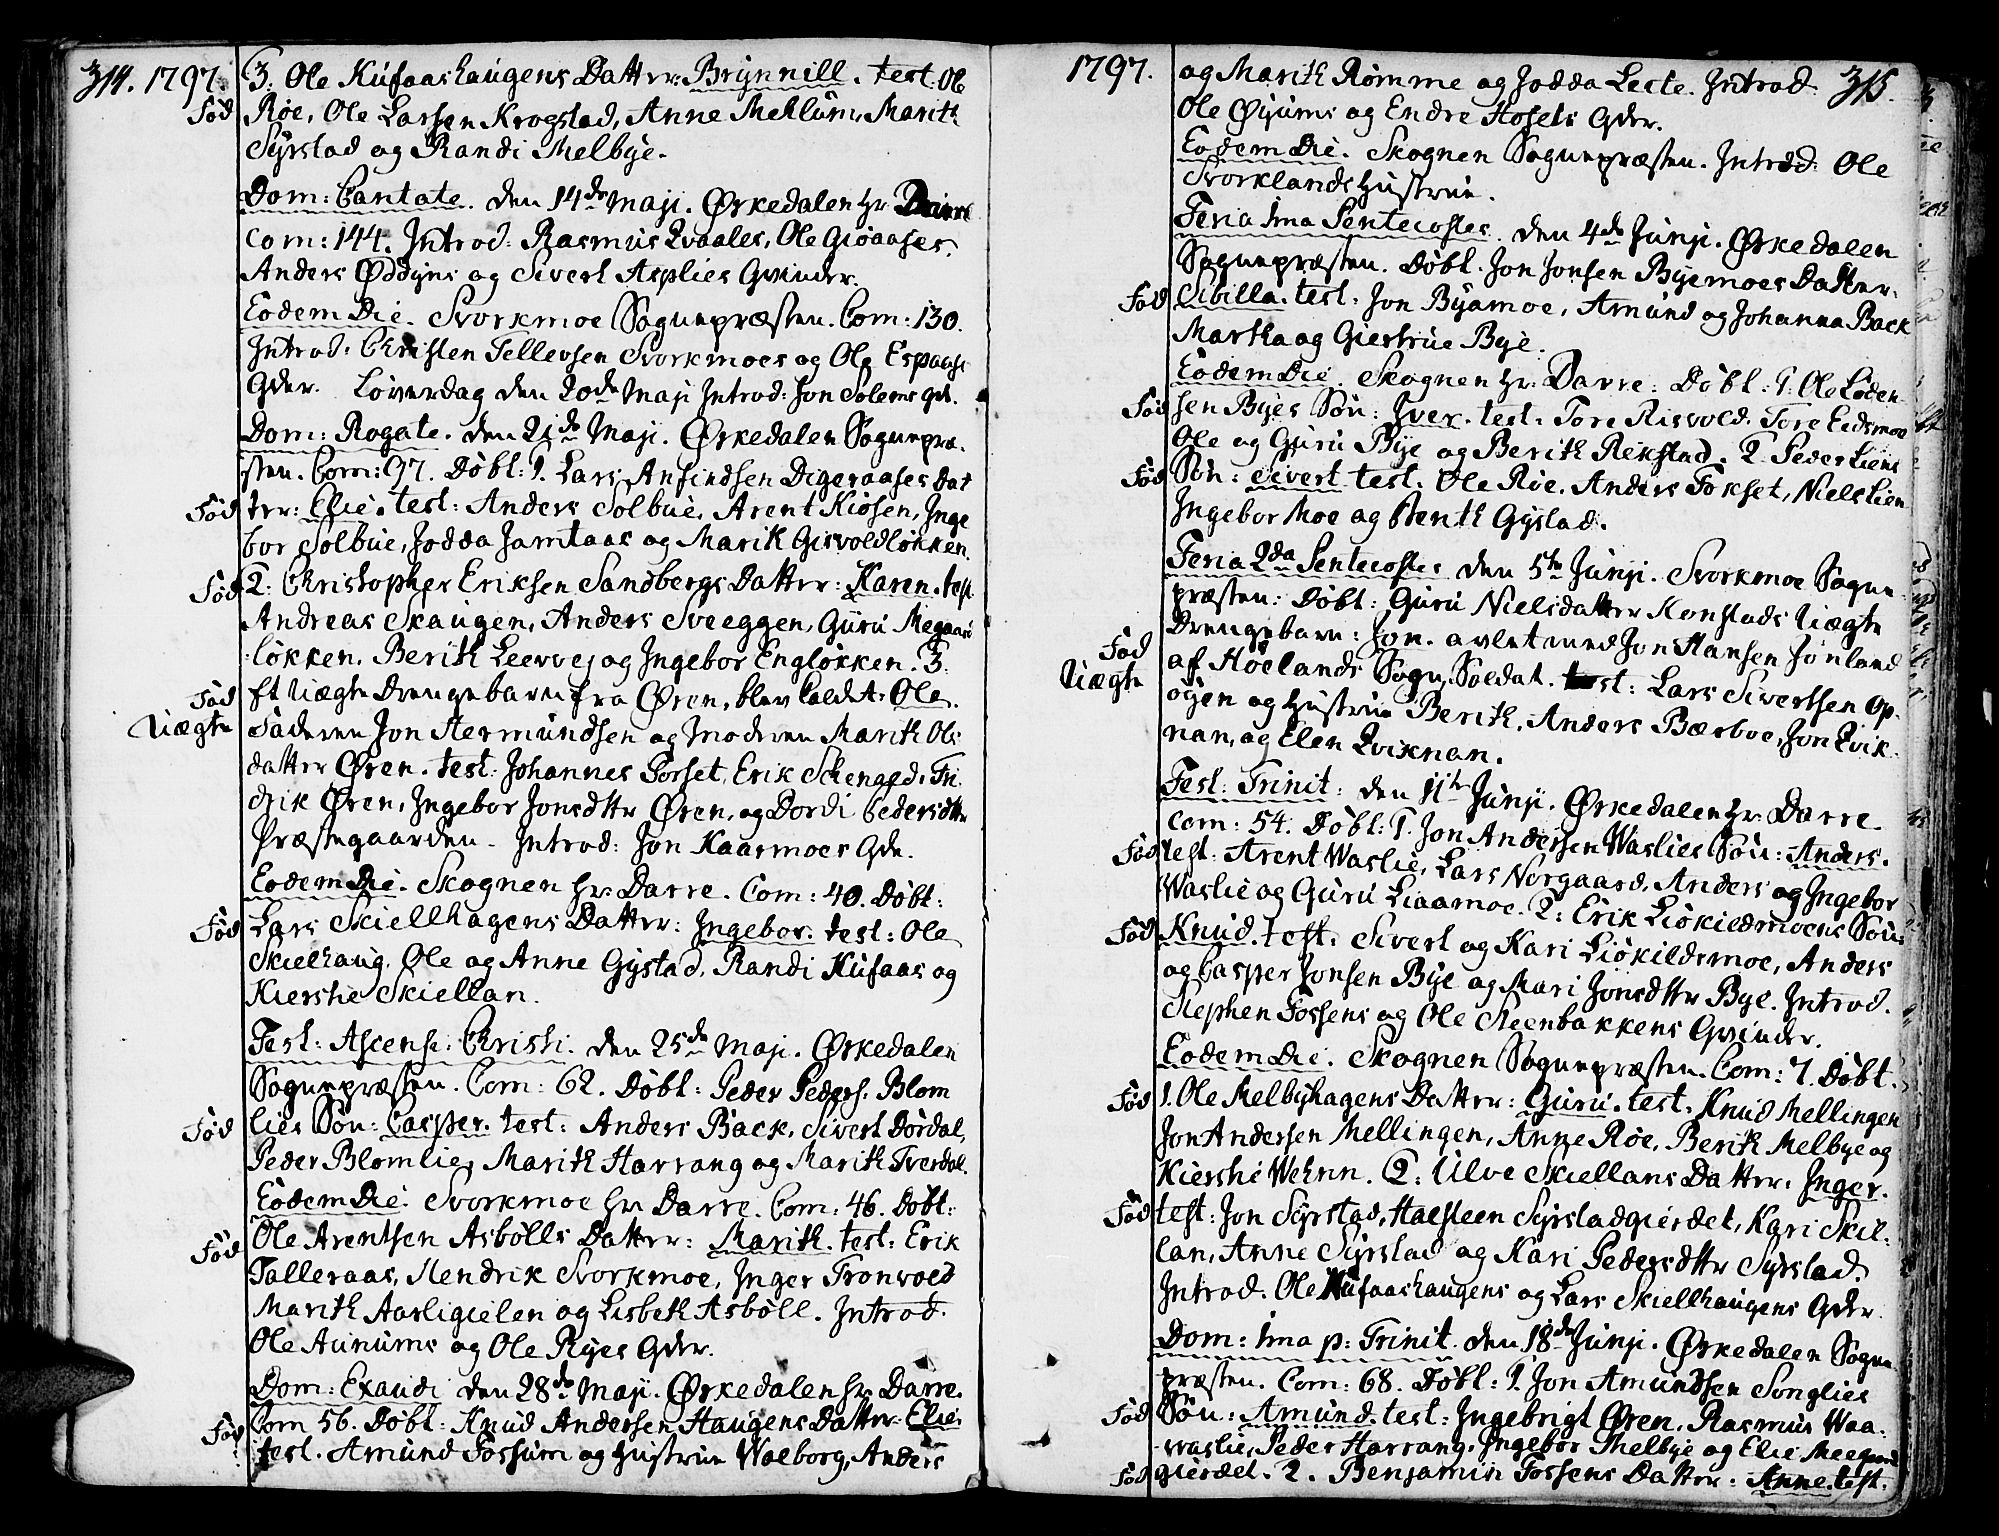 314. 1797.
3. Ole Kufaashaugens Datter: Brynnill. test. Ole
Fød Røe, Ole Larsen Krogstad, Anne Meklum, Marith
Syrstad og Randi Melbye.
Dom: Cantate. den 14de Maji. Ørkedalen Hr. Darre
Com: 144. Introd: Rasmus Qvaales, Ole Gioaases,
Anders Øddyns og Sivert Asplies Qvinder.
Eodem Die. Svorkmoe Sognepræsten. Com: 130.
Introd: Christen Tellevsen Svorkmoes og Ole Espaase
Qder. Løverdag den 20de Maji Introd: Jon Solems Qde.
Dom: Rogate. den 21de Maji. Ørkedalen Sognepræ-
sten. Com: 97. Døbt: 1. Lars Anfindsen Digeraases Dat
Fød ter: Elie. test: Anders Solbue, Arent Kiøsen, Inge
bor Solbue, Jodda Jamtaas og Marit Gisvoldløkken.
Fød 2. Christopher Eriksen Sandbergs Datter: Karen. test.
Andreas Skaugen, Anders Sveeggen, Guru Megaard
løkken. Berith Leervej og Ingebor Engløkken. 3.
Fød Et Uægte Drengebarn fra Øren, blev kaldet: Ole.
Uægte Faderen Jon Hermundsen og Moderen Marith Ols
datter Øren. test: Johannes Forset, Erik Schenged, Fri
drik Øren, Ingebor Jonsdttr Øren, og Dordi Pedersdttr
Præstegaarden. Introd: Jon Kaarmoes Qde.
Eodem Die. Skognen Hr. Darre. Com: 40. Døbt:
Fød Lars Skiellhagens Datter: Ingebor. test: Ole
Skielhaug, Ole og Anne Gystad, Randi Kufaas og
Kiershe Skiellan.
Fest: Ascens: Christi. den 25de Maji. Ørkedalen
Sognepræsten. Com: 62. Døbt: Peder Peders: Blom
Fød lies Søn: Casper. test: Anders Back, Sivert Dørdal,
Peder Blomlie, Marith Harrang og Marith Tverdal.
Eodem Die. Svorkmoe Hr. Darre. Com: 46. Døbt:
Fød Ole Arentsen Asbølls Datter: Marith. test: Erik
Talleraas, Hendrik Svorkmoe, Inger Tronvold
Marith Aarligielen og Lisbeth Asbøll. Introd.
Ole Aunums og Ole Ryes Qder.
Dom: Exaudi den 28de Maji. Ørkedalen Hr. Darre.
Fød Com 56. Døbt: Knud Andersen Haugens Datter: Elie.
test. Amund Fossum og Hustrue Walborg, Anders
1797. 315.
og Marith Rømme og Jodda Leete. Introd:
Ole Øyums og Endre Hosets Qder.
Eodem Die. Skognen Sognepræsten. Introd: Ole
Svorklands Hustrue.
Feria 1ma Pentecostes. den 4de Junji. Ørkedalen
Sognepræsten. Døbt. Jon Jonsen Byemoes Datter:
Fød Sibilla. test: Jon Byamoe, Amund og Johanna Back
Martha og Giertrue Bye.
Eodem Die. Skognen Hr: Darre: Døbt: 1. Ole Loden-
Fød sen Byes Søn: Iver. test: Tore Risvold. Tore Eidsmoe
Ole og Guru Bye og Berith Rekstad. 2. Peder Liens
Fød Søn: Sivert test. Ole Røe. Anders Fokset, Niels Lien
Ingebor Moe og Berith Gystad.
Feria 2da Pentecostes den 5te Junji. Svorkmoe Sogne
præsten: Døbt: Guru Nielsdatter Konstads Uægte
Fød Drengebarn: Jon. avlet med Jon Hansen Jønland
Uægte af Hølands Sogn, Soldat. test: Lars Sivertsen Op-
øyen og Hustrue Berith, Anders Bærboe, Jon Qvik-
nan, og Elen Qviknan.
Fest: Trinit: den 11te Junji. Ørkedalen Hr. Darre
Com: 54. Døbt: 1. Jon Andersen Waslies Søn: Anders.
Fød test: Arent Waslie, Lars Norgaard, Anders og Ingebor
Waslie og Guru Liaamoe. 2: Erik Liøkildsmoens Søn:
Fød Knud. test. Sivert og Kari Liøkildsmoe, Anders
og Casper Jonsen Bye og Mari Jonsdttr Bye. Introd.
Stephen Fossens og Ole Steenbakkens Qvinder.
Eodem Die. Skognen Sognepræsten. Com: 7. Døbt.
Fød 1. Ole Melbyhagens Datter: Guru. test. Knud Mellingen
Jon Andersen Mellingen, Anne Røe, Berith Melbye og
Kiershe Wehnn. 2: Ulve Skiellans Datter: Inger.
Fød test: Jon Syrstad, Halsteen Syrstadgierdet, Kari Skiel-
lan, Anne Syrstad og Kari Pedersdttr Syrstad.
Introd. Ole Kufaashaugens og Lars Skiellhaugens Qder.
Dom: 1ma p: Trinit. den 18de Junji. Ørkedalen Sogne
præsten. Com: 68. Døbt: 1. Jon Amundsen Songlies
Fød Søn: Amund. test: Ingebrigt Øren, Rasmus Waa-
waslie, Peder Harrang, Ingebor Melbye og Elie Meegaard
Fød gierdet. 2. Benjamin Fossens Datter: Anne. test: